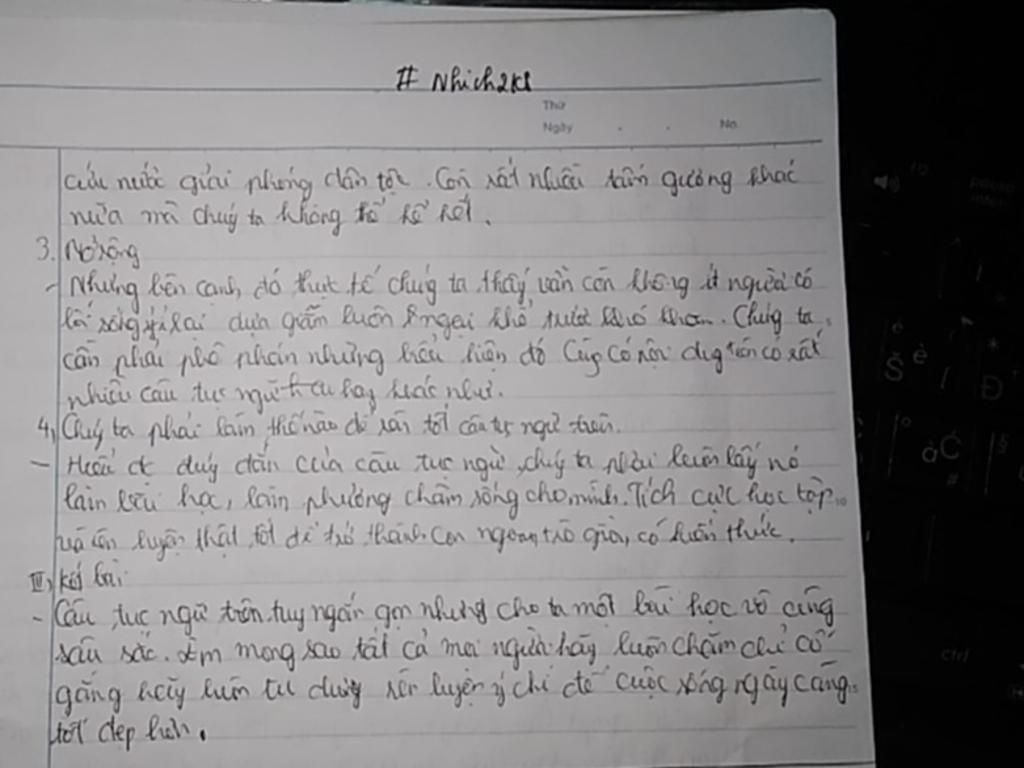 # Nhich2k8
Thứ
Ngày . . No.
cứu nước giải phóng dân tộc. Còn rất nhiều tấm gương khác
nữa mà chúng ta không thể kể hết.
3. Mở rộng
- Nhưng bên cạnh đó thực tế chúng ta thấy vẫn còn không ít người có
lối sống ỷ lại dựa dẫm luôn ngại khổ, trước khó khăn. Chúng ta
cần phải phê phán những biểu hiện đó
nhiều câu tục ngữ hay khác như.
4, Chúng ta phải làm thế nào để tốt câu tục ngữ trên.
- Hiểu đc đúng đắn của câu tục ngữ, chúng ta phải luôn lấy nó
làm bài học, làm phương châm sống cho mình. Tích cực học tập
và rèn luyện thật tốt để trở thành con ngoan, trò giỏi, có kiến thức.
III, Kết bài:
- Câu tục ngữ trên tuy ngắn gọn nhưng cho ta một bài học vô cùng
sâu sắc. Em mong sao tất cả mọi người hãy luôn chăm chỉ cố
gắng hãy luôn rèn luyện ý chí để cuộc sống ngày càng
tốt đẹp hơn.
pause
Š
è
Đ
à
Ć
§
ctrl